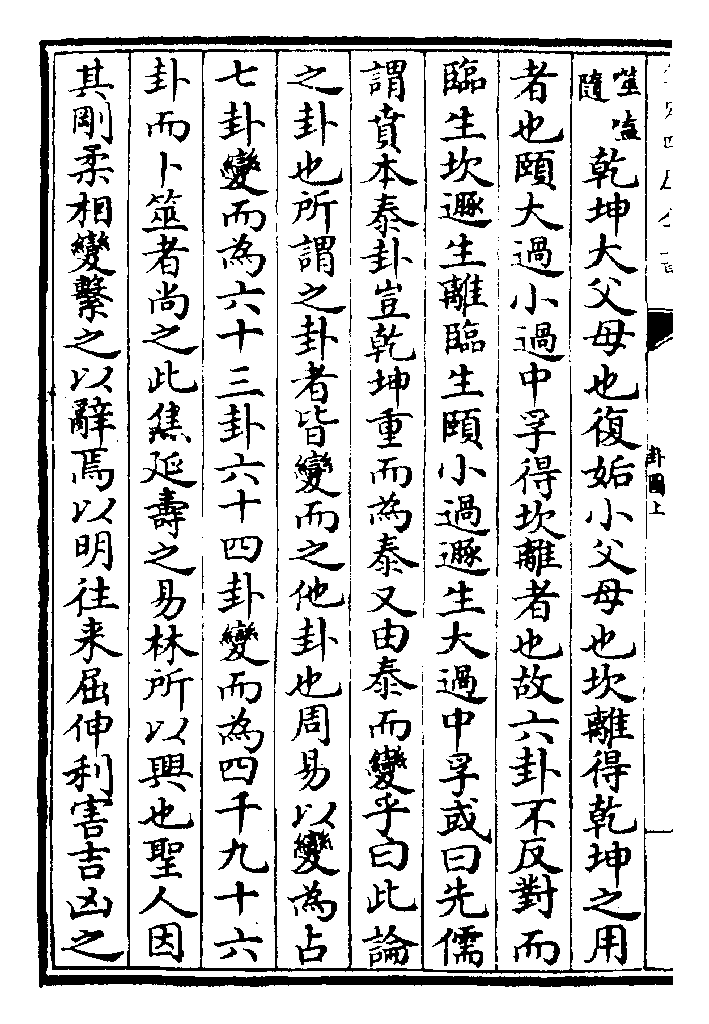 卦圖上
噬嗑
隨
乾坤大父母也復姤小父母也坎離得乾坤之用
者也頤大過小過中孚得坎離者也故六卦不反對而
臨生坎遯生離臨生頤小過遯生大過中孚或曰先儒
謂賁本泰卦豈乾坤重而為泰又由泰而變乎曰此論
之卦也所謂之卦者皆變而之他卦也周易以變為占
七卦變而為六十三卦六十四卦變而為四千九十六
卦而卜筮者尚之此焦延壽之易林所以興也聖人因
其剛柔相變繫之以辭焉以明往来屈伸利害吉凶之